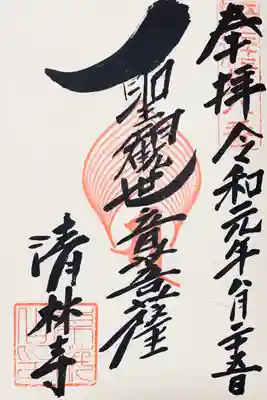 奉拝 令和元年八月二十五日
聖観世音菩薩
清林寺